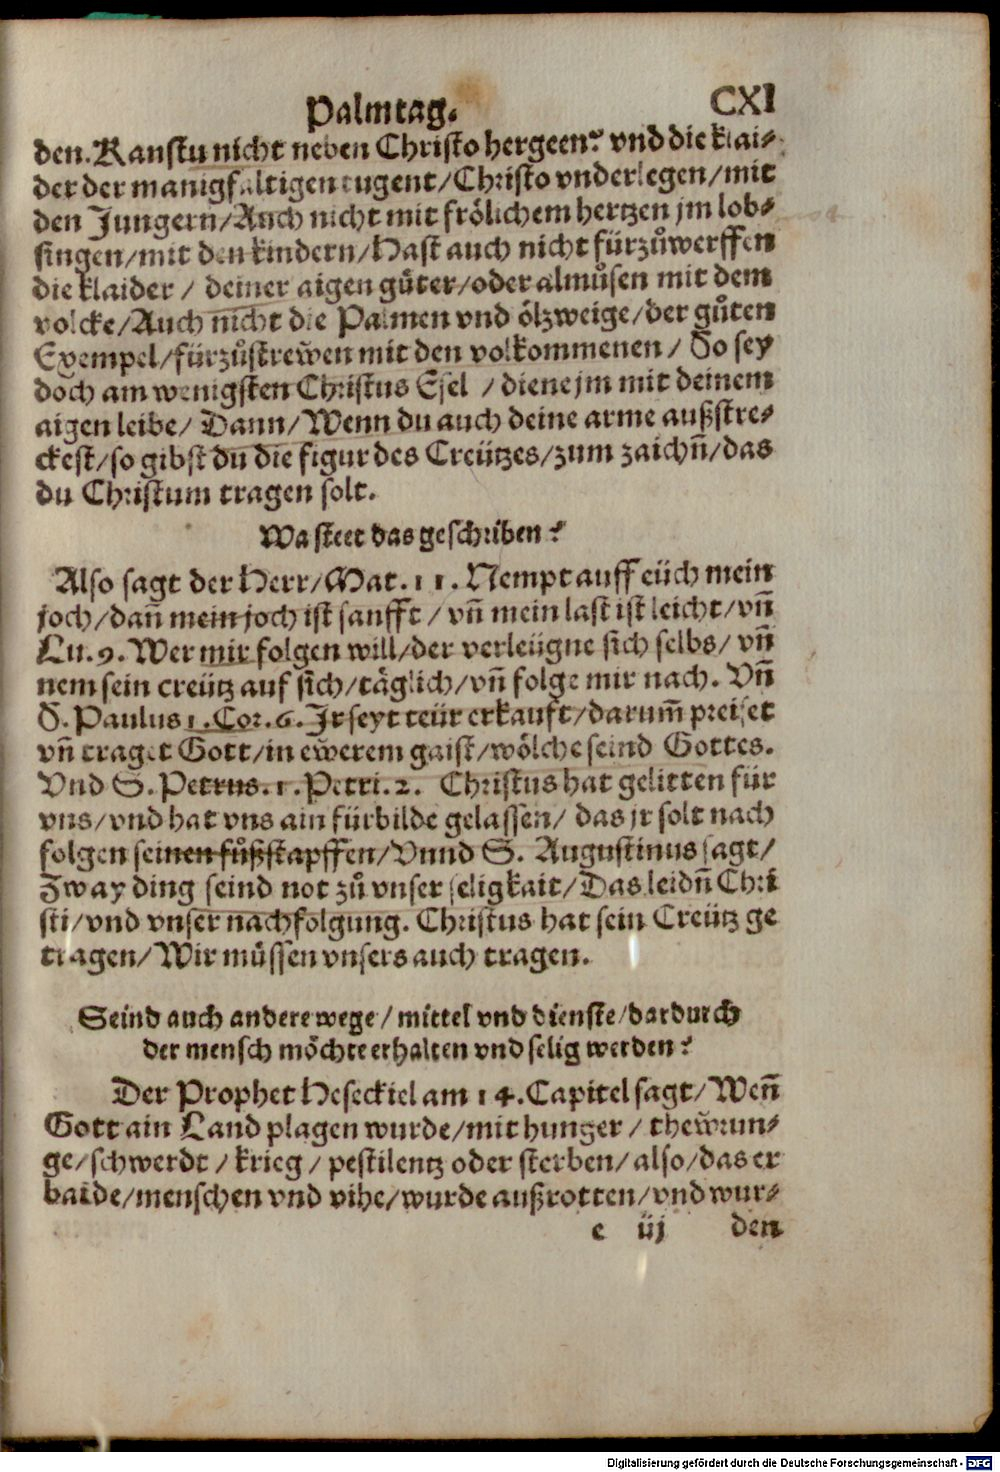 Palmtag. CXI
den. Kanstu nicht neben Christo hergeen? vnd die klai⸗
der der manigfaltigen tugent/ Christo vnderlegen/ mit
den Jungern/ Auch nicht mit frölichem hertzen jm lob⸗
singen/ mit den kindern/ Hast auch nicht fürzůwerffen
die klaider / deiner aigen gůter/ oder almůsen mit dem
volcke/ Auch nicht die Palmen vnd ölzweige/ der gůten
Exempel/ fürzůstrewen mit den volkommenen / So sey
doch am wenigsten Christus Esel / diene jm mit deinem
aigen leibe/ Dann/ Wenn du auch deine arme außstre⸗
ckest/ so gibst du die figur des Creützes/ zum zaichñ/ das
du Christum tragen solt.
Wa steet das geschriben?
Also sagt der Herr/ Mat. 11. Nempt auff eüch mein
joch/ dañ mein joch ist sanfft / vñ mein last ist leicht/ vñ
Lu. 9. Wer mir folgen will/ der verleügne sich selbs/ vñ
nem sein creütz auf sich/ täglich/ vñ folge mir nach. Vñ
S. Paulus 1. Cor. 6. Jr seyt teür erkauft/ darum̃ preiset
vñ traget Gott/ in ewerem gaist/ wölche seind Gottes.
Vnd S. Petrus. 1. Petri. 2. Christus hat gelitten für
vns/ vnd hat vns ain fürbilde gelassen/ das jr solt nach
folgen seinen fůßstapffen/ Vnnd S. Augustinus sagt/
Zway ding seind not zů vnser seligkait/ Das leidñ Chri
sti/ vnd vnser nachfolgung. Christus hat sein Creütz ge
tragen/ Wir müssen vnsers auch tragen.
Seind auch andere wege / mittel vnd dienste/ dardurch
der mensch möchte erhalten vnd selig werden?
Der Prophet Heseckiel am 14. Capitel sagt/ Weñ
Gott ain Land plagen wurde/ mit hunger / thewrun⸗
ge/ schwerdt / krieg / pestilentz oder sterben/ also/ das er
baide/ menschen vnd vihe/ wurde außrotten/ vnd wur⸗
e iij den
Digitalisierung gefördert durch die Deutsche Forschungsgemeinschaft - DFG